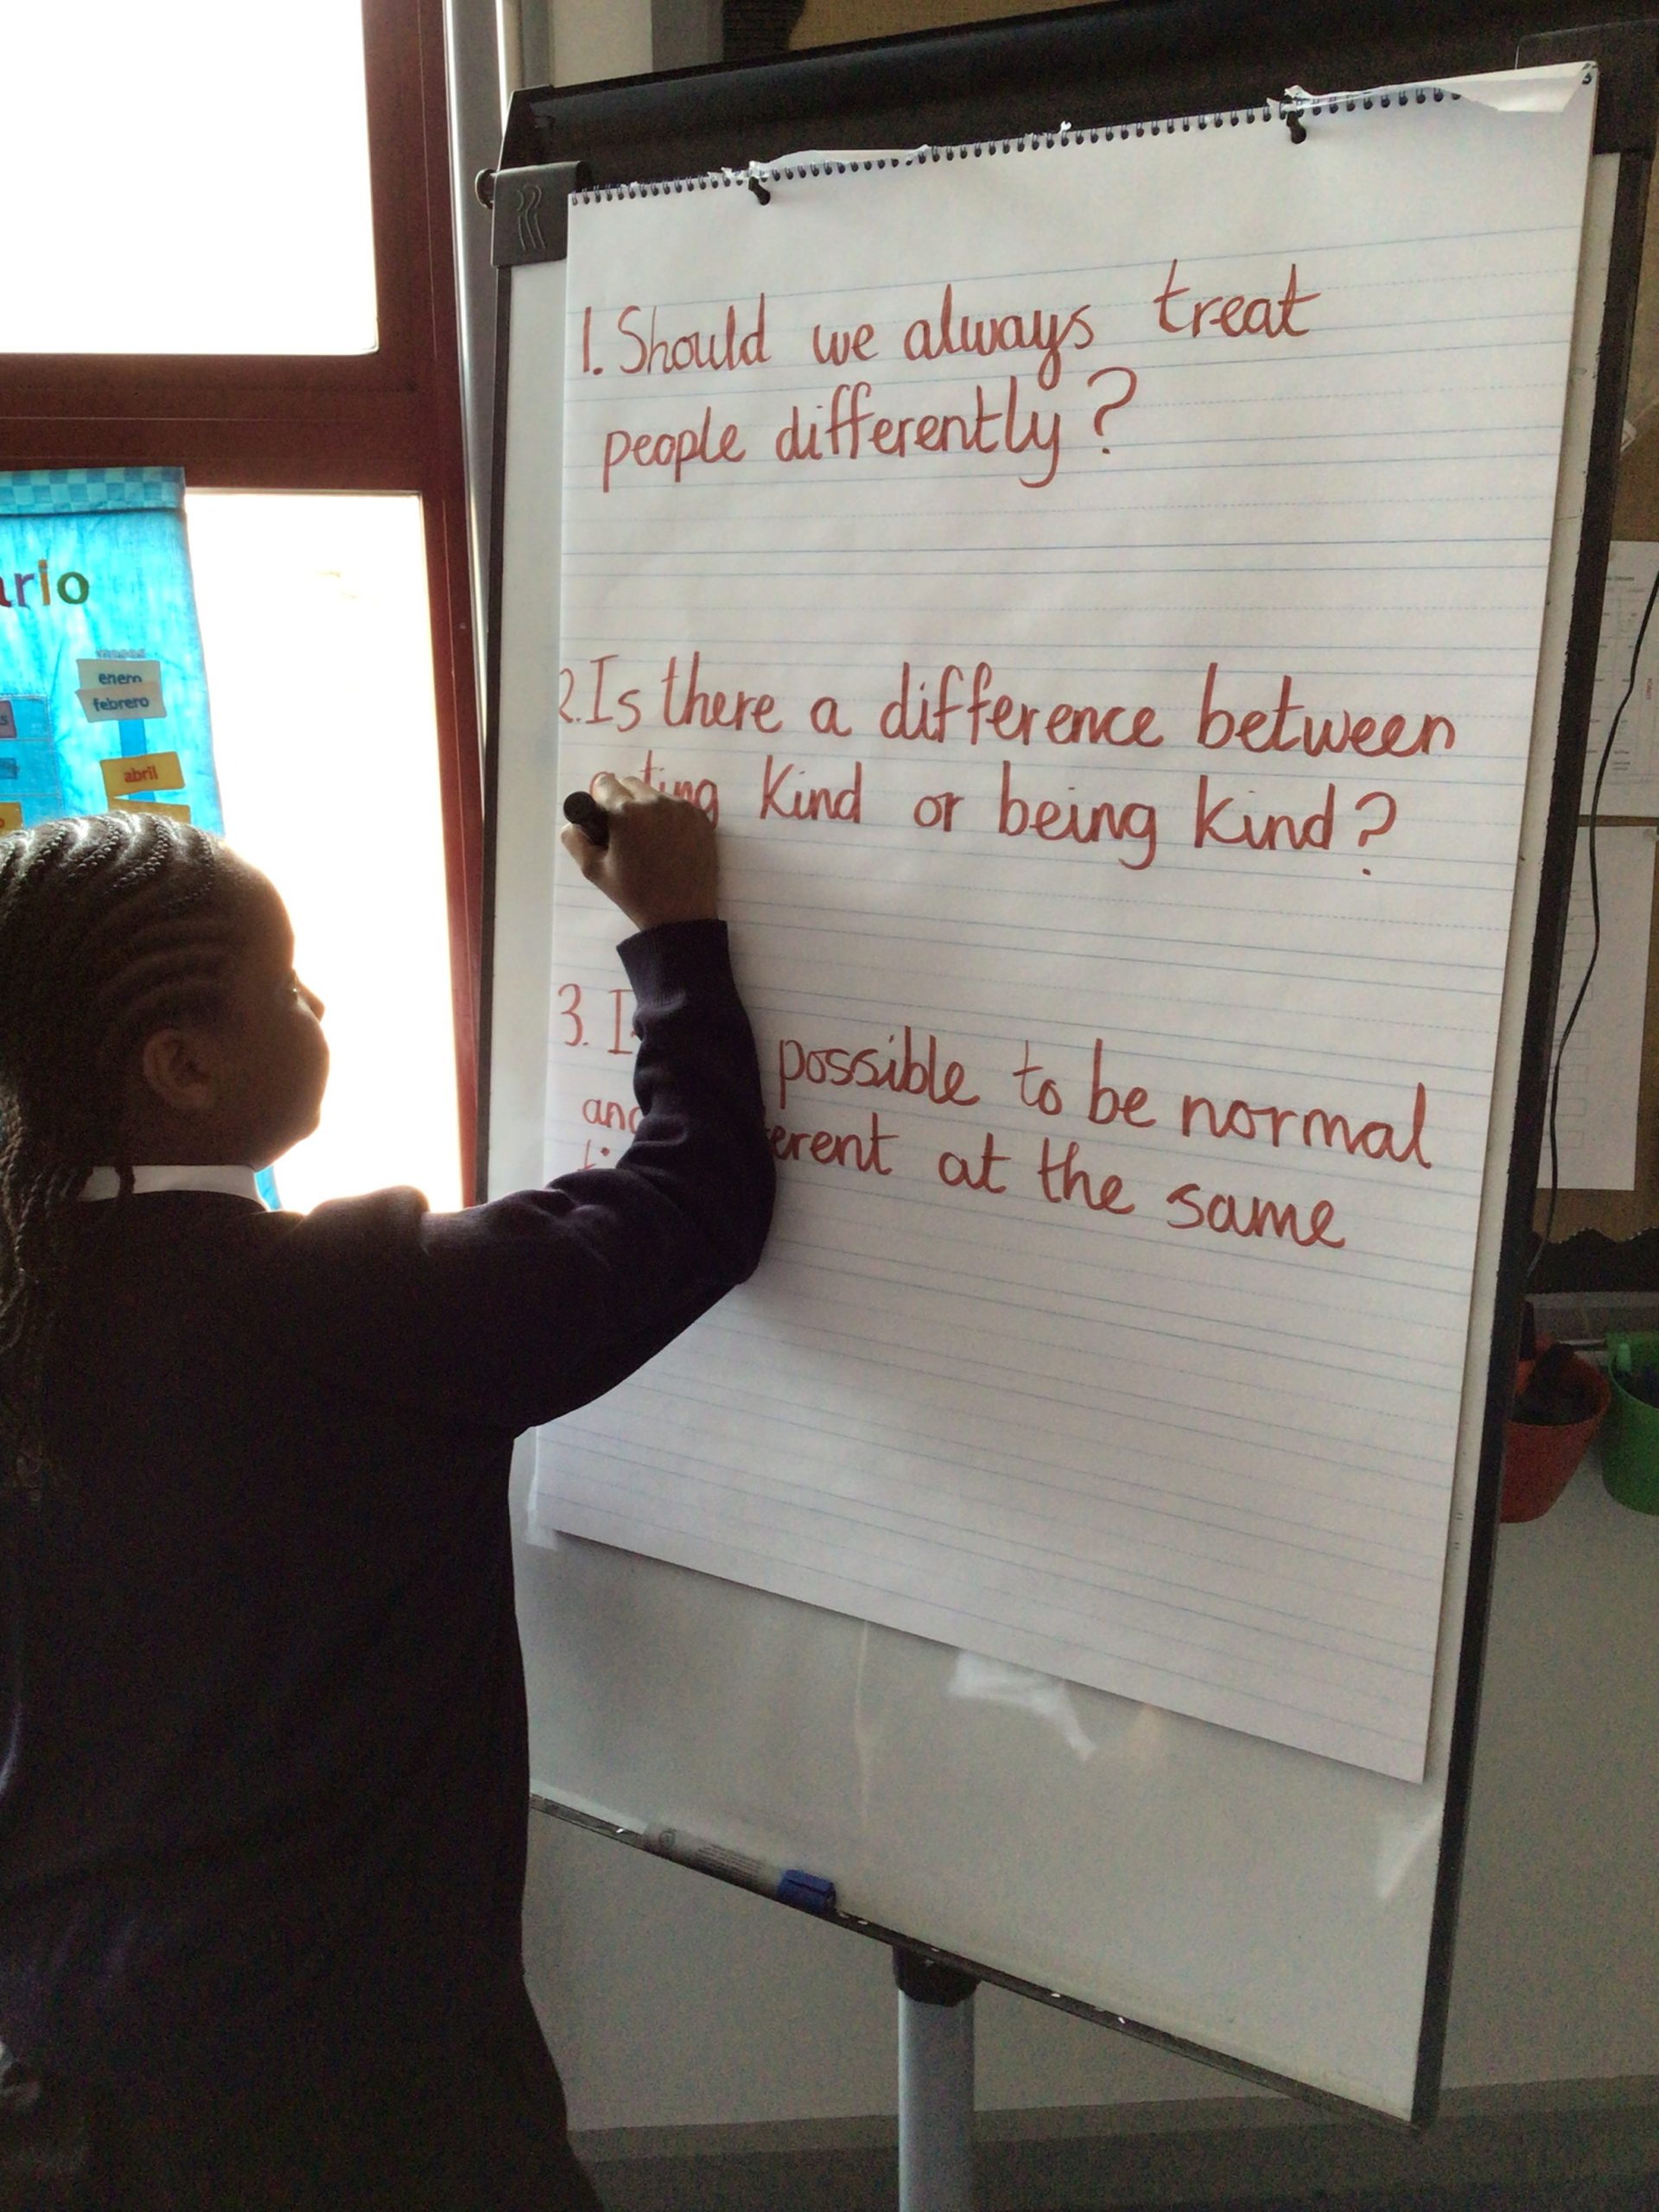 1. Should we always treat
people differently?
2. Is there a difference between
Kind or being kind?
3.
possible to be normal
at the same
enero
febrero
abril